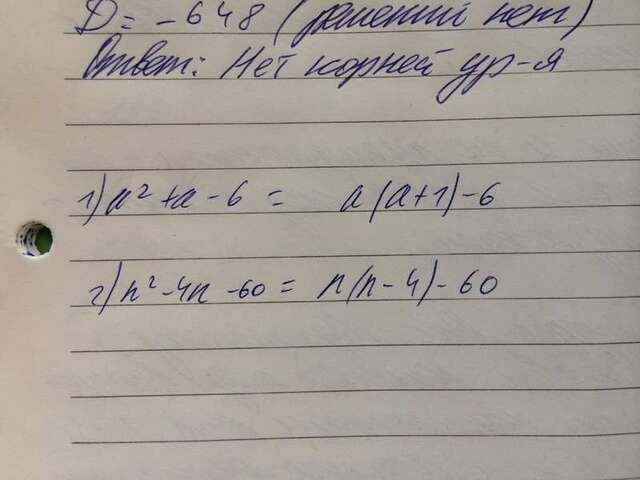 D = -648 (решений нет)
Ответ: Нет корней ур-я
1) a² + a - 6 = a(a+1)-6
2) n² - 4n - 60 = n(n-4)-60